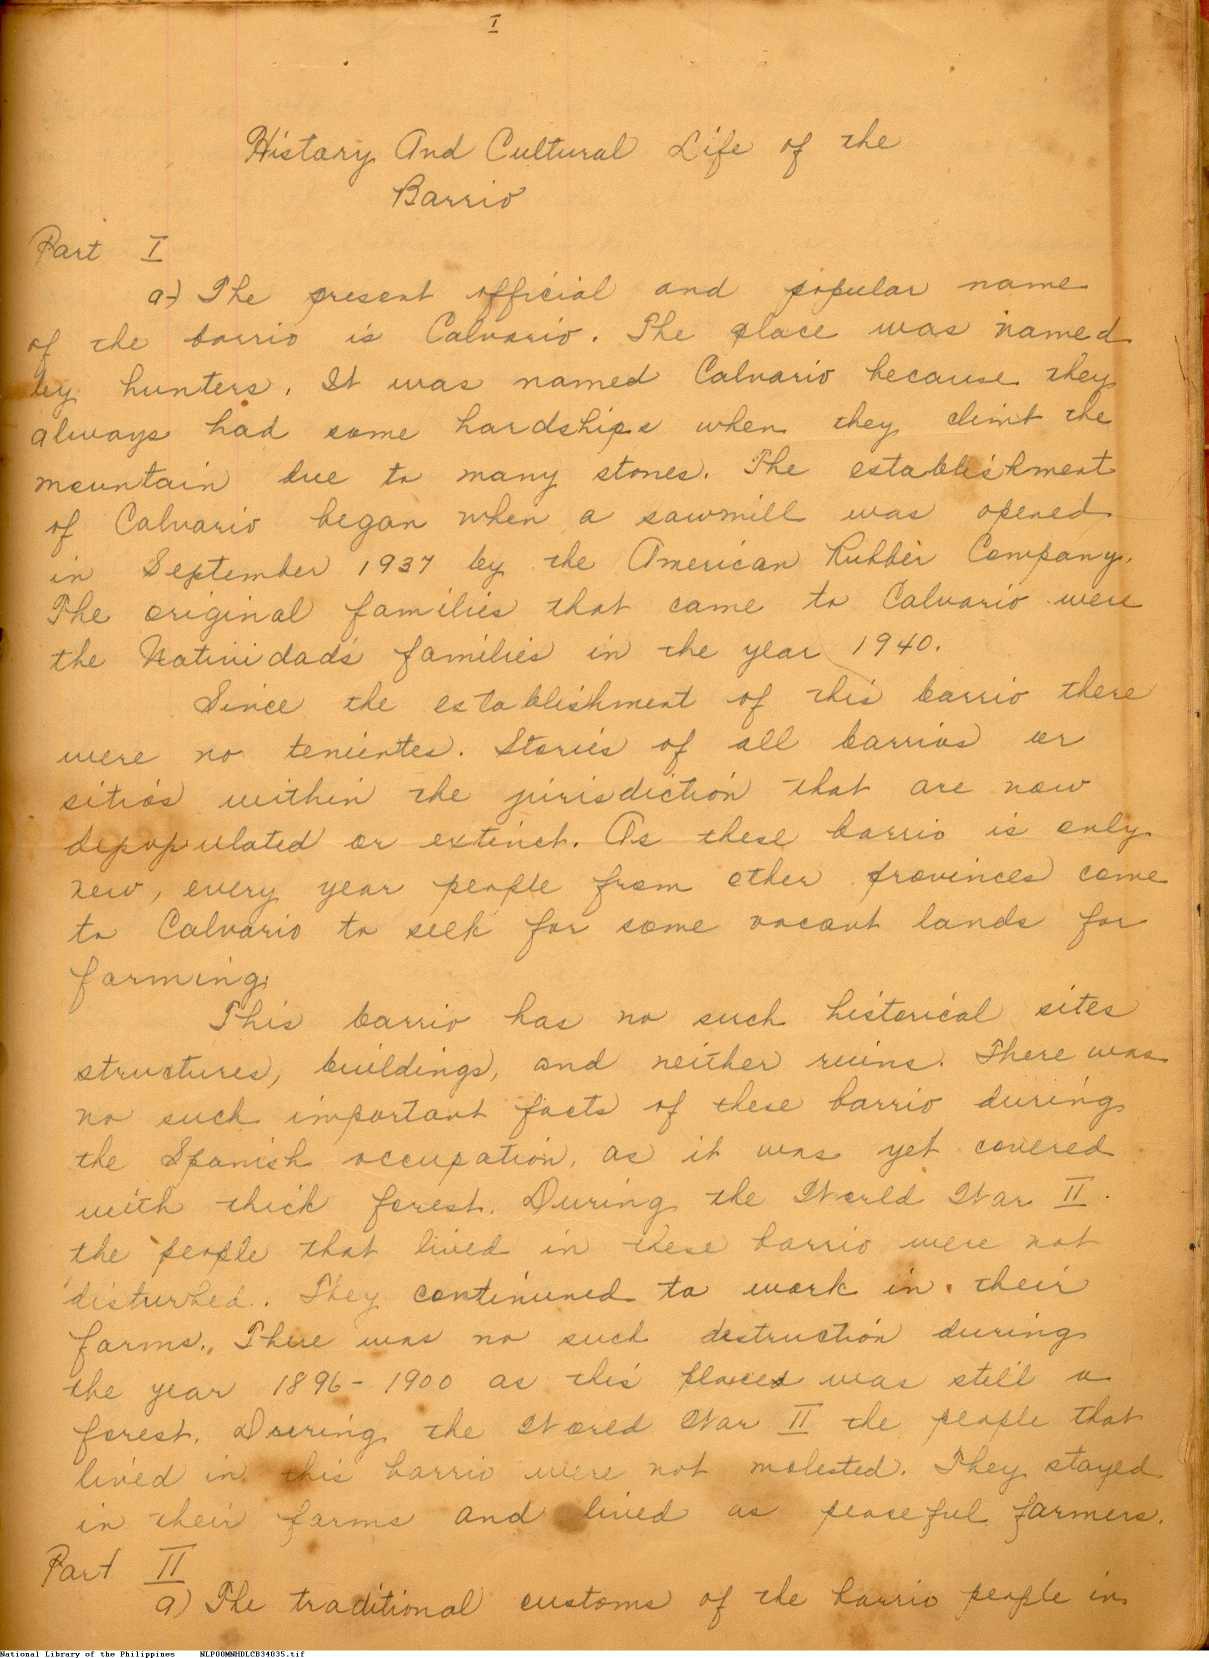 I
History And Cultural Life of the
Barrio
Part I
a) The present official and popular name
of the barrio is Calvario. The place was named
by hunters. It was named Calvario because they
always had some hardships when they climt the
mountain due to many stones. The establishment
of Calvario began when a sawmill was opened
in September 1937 by the American Rubber Company.
The original families that came to Calvario were
the Natividads families in the year 1940.
Since the establishment of this barrio there
were no tenientes. Stories of all barrios or
sitios within the jurisdiction that are now
depopulated or extinct. As these barrio is only
new, every year people from other provinces come
to Calvario to seek for some vacant lands for
farming.
This barrio has no such historical sites
structures, buildings, and neither ruins. There was
no such important facts of these barrio during
the Spanish occupation, as it was yet covered
with thick forest. During the World War II.
the people that lived in these barrio were not
disturbed. They continued to work in their
farms. There was no such destruction during
the year 1896-1900 as this place was still a
forest. During the World War II the people that
lived in this barrio were not molested. They stayed
in their farms and lived as peaceful farmers.
Part II
a) The traditional customs of the barrio people in
National Library of the Philippines NLP00MNHDLCB34035.tif